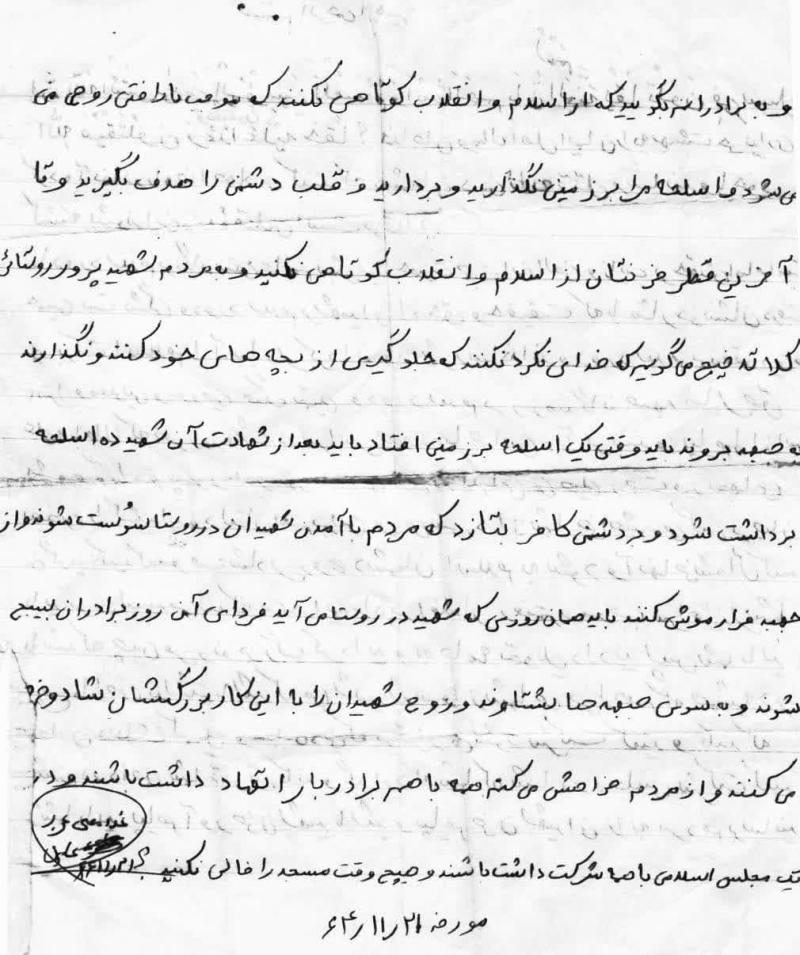 و به برادرانم بگویید که از اسلام و انقلاب کوتاهی نکنند که موجب ناراحتی روحی من
می‌شود و اسلحه مرا بر زمین نگذارید و بردارید و قلب دشمن را هدف بگیرید و تا
آخرین قطر خونتان از اسلام و انقلاب کوتاهی نکنید و به مردم شهید پرور روستائی
کلاته خیج می‌گویم که خدای نکرد نکنند که جلوگیری از بچه های خود کنند و نگذارند
به جبهه بروند باید وقتی یک اسلحه بر زمین افتاد باید بعد از شهادت آن شهید ده اسلحه
برداشت شود و بر دشمن کافر بتازد که مردم با آمدن شهیدان در روستا سُست شوند و از
جبهه فراموش کنند باید همان روزی که شهید در روستا می آید فردای آن روز برادران بسیج
شوند و به سوی جبهه ها بشتاوند و روح شهیدان را با این کار بزرگشان شاد
می کنند و از مردم خواهش می‌کنم همه با هم برادر بار اتهاد داشت باشند و در
یک مجلس اسلامی با هم شرکت داشت باشند و هیچ وقت مسجد را خالی نکنید
مورخه ۶۴/۱۱/۲۱